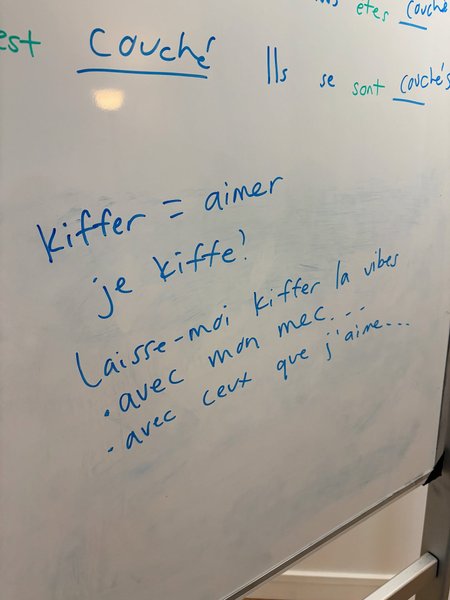 êtes couché
est couché Ils se sont couchés
kiffer = aimer
je kiffe!
Laisse-moi kiffer la vibes
• avec mon mec...
• avec ceux que j'aime...